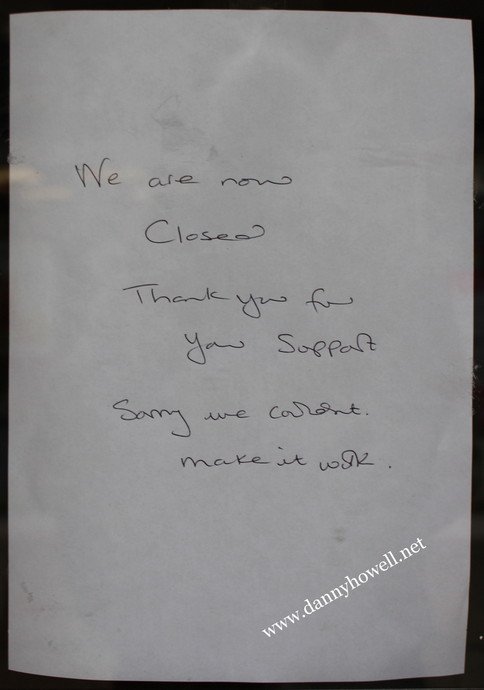 We are now
Closed
Thank you for
your Support
Sorry we couldnt.
make it work.
www.dannyhowell.net